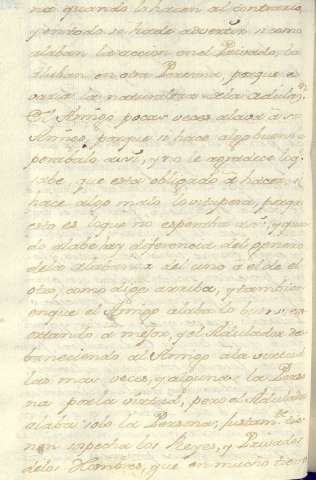 no quando lo hacen al contrario,
y en todo se ha de advertir si como
alaban la accion en el Privado, la
alaban en otra Persona, porque
varia la naturaleza de la adulaz.on
El Amigo pocas veces alava à su
Amigo, porque si hace algo bueno es
perabalo assi, y no le agradece lo q.
sabe, que està obligado à hacer, si
hace algo malo lo vitupera, porque
esto es lo que no esperaba, y quan
do alabe hay diferencia del genero
de la alabanza del uno à el de el
otro, como digo arriba, y tambien
en que el Amigo alaba lo bueno, ex
ortando à mejor, y el Adulador des
baneciendo al Amigo à la virtud
las mas veces, y alguna la Perso
na por la virtud, pero el Adulador
alaba solo la Persona, justam.te tie
nen sospecha los Reyes, y Privados
de los Hombres, que en mucho tiem